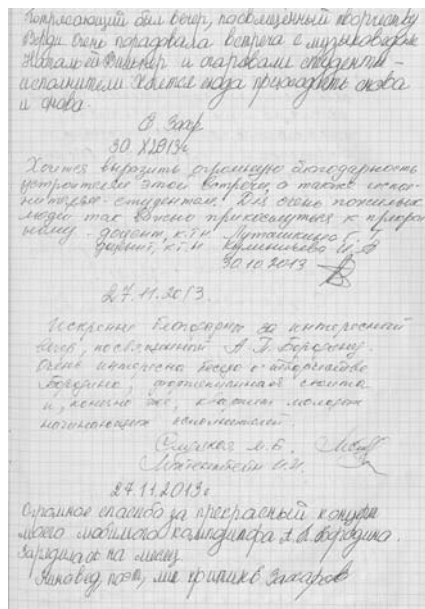 Потрясающий был вечер, посвященный творчеству
Верди. Очень порадовала встреча с музыковедом
Натальей и очаровали студенты-
исполнители. Хочется сюда приходить снова
и снова.
30. X 2013г
Хочется выразить огромную благодарность
устроителям этой встречи, а также испол-
нителям-студентам. Для очень пожилых
людей так важно прикоснуться к прекрас
ному. доцент, к.т.н
доцент, к.т.н
30.10.2013
27.11.2013.
Искренне благодарим за интересный
вечер, посвященный А.П. Бородину.
Очень интересна беседа о творчестве
Бородина, фортепианная сюита
и, конечно же, квартет молодых
начинающих исполнителей.
27.11.2013г
Огромное спасибо за прекрасный концерт
моего любимого композитора А.П. Бородина.
Зарядилась на месяц.
поэт, критик Захаров